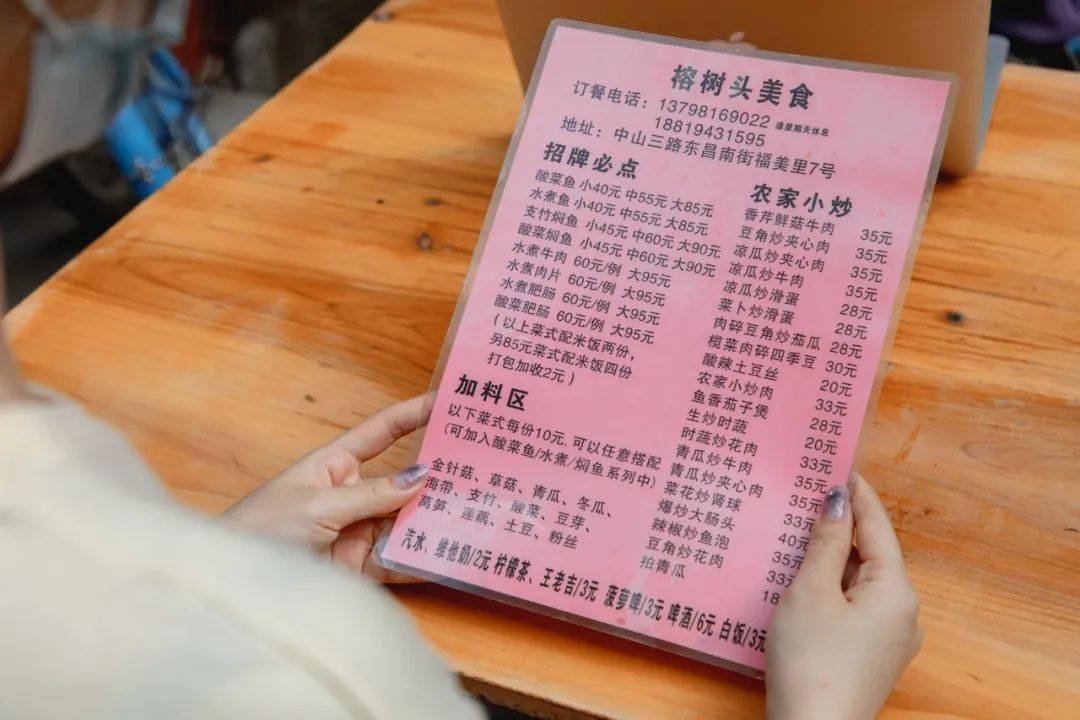 榕树头美食
订餐电话：13798169022 逢星期天休息
18819431595
地址：中山三路东昌南街福美里7号
招牌必点
酸菜鱼 小40元 中55元 大85元
水煮鱼 小40元 中55元 大85元
支竹焖鱼 小45元 中60元 大90元
酸菜焖鱼 小45元 中60元 大90元
水煮牛肉 60元/例 大95元
水煮肉片 60元/例 大95元
水煮肥肠 60元/例 大95元
酸菜肥肠 60元/例 大95元
（以上菜式配米饭两份，
另85元菜式配米饭四份
打包加收2元）
加料区
以下菜式每份10元，可以任意搭配
(可加入酸菜鱼/水煮/焖鱼系列中)
金针菇、草菇、青瓜、冬瓜、
海带、支竹、酸菜、豆芽、
莴笋、莲藕、土豆、粉丝
农家小炒
香芹鲜菇牛肉 35元
豆角炒夹心肉 35元
凉瓜炒夹心肉 35元
凉瓜炒牛肉 35元
凉瓜炒滑蛋 28元
菜卜炒滑蛋 28元
肉碎豆角炒茄瓜 28元
榄菜肉碎四季豆 30元
酸辣土豆丝 20元
农家小炒肉 33元
鱼香茄子煲 28元
生炒时蔬 20元
时蔬炒花肉 33元
青瓜炒牛肉 35元
青瓜炒夹心肉 35元
菜花炒肾球 33元
爆炒大肠头 40元
辣椒炒鱼泡 35元
豆角炒花肉 33元
拍青瓜 18
汽水、维他奶/2元 柠檬茶、王老吉/3元 菠萝啤/3元 啤酒/6元 白饭/3元